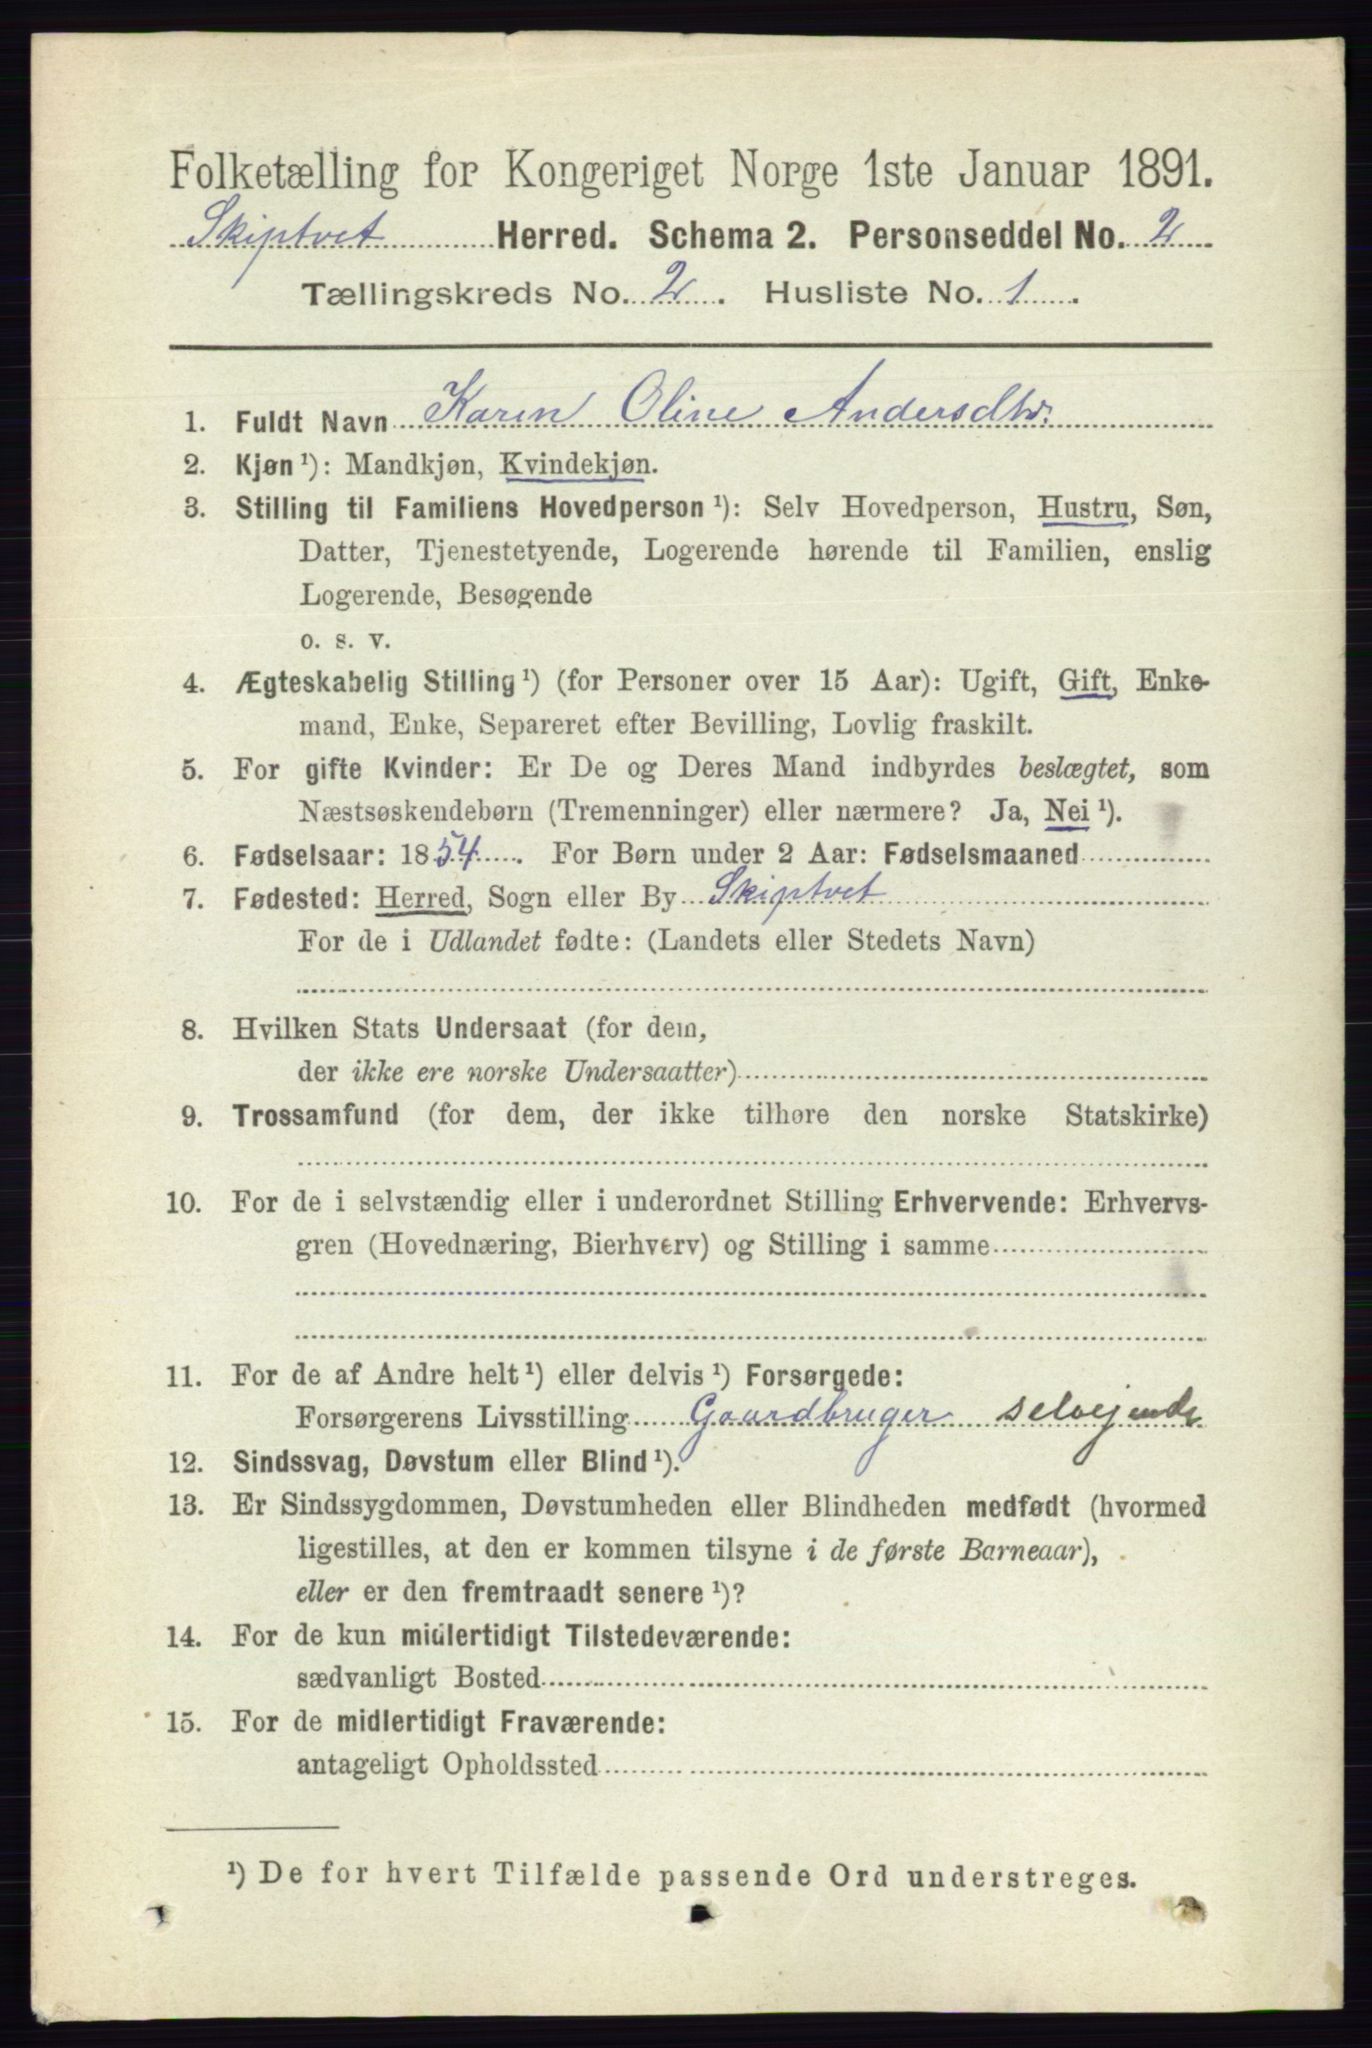 Folketælling for Kongeriget Norge 1ste Januar 1891.
Skiptvet Herred. Schema 2. Personseddel No. 2
Tællingskreds No. 2. Husliste No. 1.
1. Fuldt Navn Karen Oline Andersdtr.
2. Kjøn ¹): Mandkjøn, Kvindekjøn.
3. Stilling til Familiens Hovedperson ¹): Selv Hovedperson, Hustru, Søn,
Datter, Tjenestetyende, Logerende hørende til Familien, enslig
Logerende, Besøgende
o. s. v.
4. Ægteskabelig Stilling ¹) (for Personer over 15 Aar): Ugift, Gift, Enke-
mand, Enke, Separeret efter Bevilling, Lovlig fraskilt.
5. For gifte Kvinder: Er De og Deres Mand indbyrdes beslægtet, som
Næstsøskendebørn (Tremenninger) eller nærmere? Ja, Nei ¹).
6. Fødselsaar: 1854. For Børn under 2 Aar: Fødselsmaaned
7. Fødested: Herred, Sogn eller By Skiptvet
For de i Udlandet fødte: (Landets eller Stedets Navn)
8. Hvilken Stats Undersaat (for dem,
der ikke ere norske Undersaatter)
9. Trossamfund (for dem, der ikke tilhøre den norske Statskirke)
10. For de i selvstændig eller i underordnet Stilling Erhvervende: Erhvervs-
gren (Hovednæring, Bierhverv) og Stilling i samme
11. For de af Andre helt ¹) eller delvis ¹) Forsørgede:
Forsørgerens Livsstilling Gaardbruger selvejende
12. Sindssvag, Døvstum eller Blind ¹).
13. Er Sindssygdommen, Døvstumheden eller Blindheden medfødt (hvormed
ligestilles, at den er kommen tilsyne i de første Barneaar),
eller er den fremtraadt senere ¹)?
14. For de kun midlertidigt Tilstedeværende:
sædvanligt Bosted
15. For de midlertidigt Fraværende:
antageligt Opholdssted
¹) De for hvert Tilfælde passende Ord understreges.